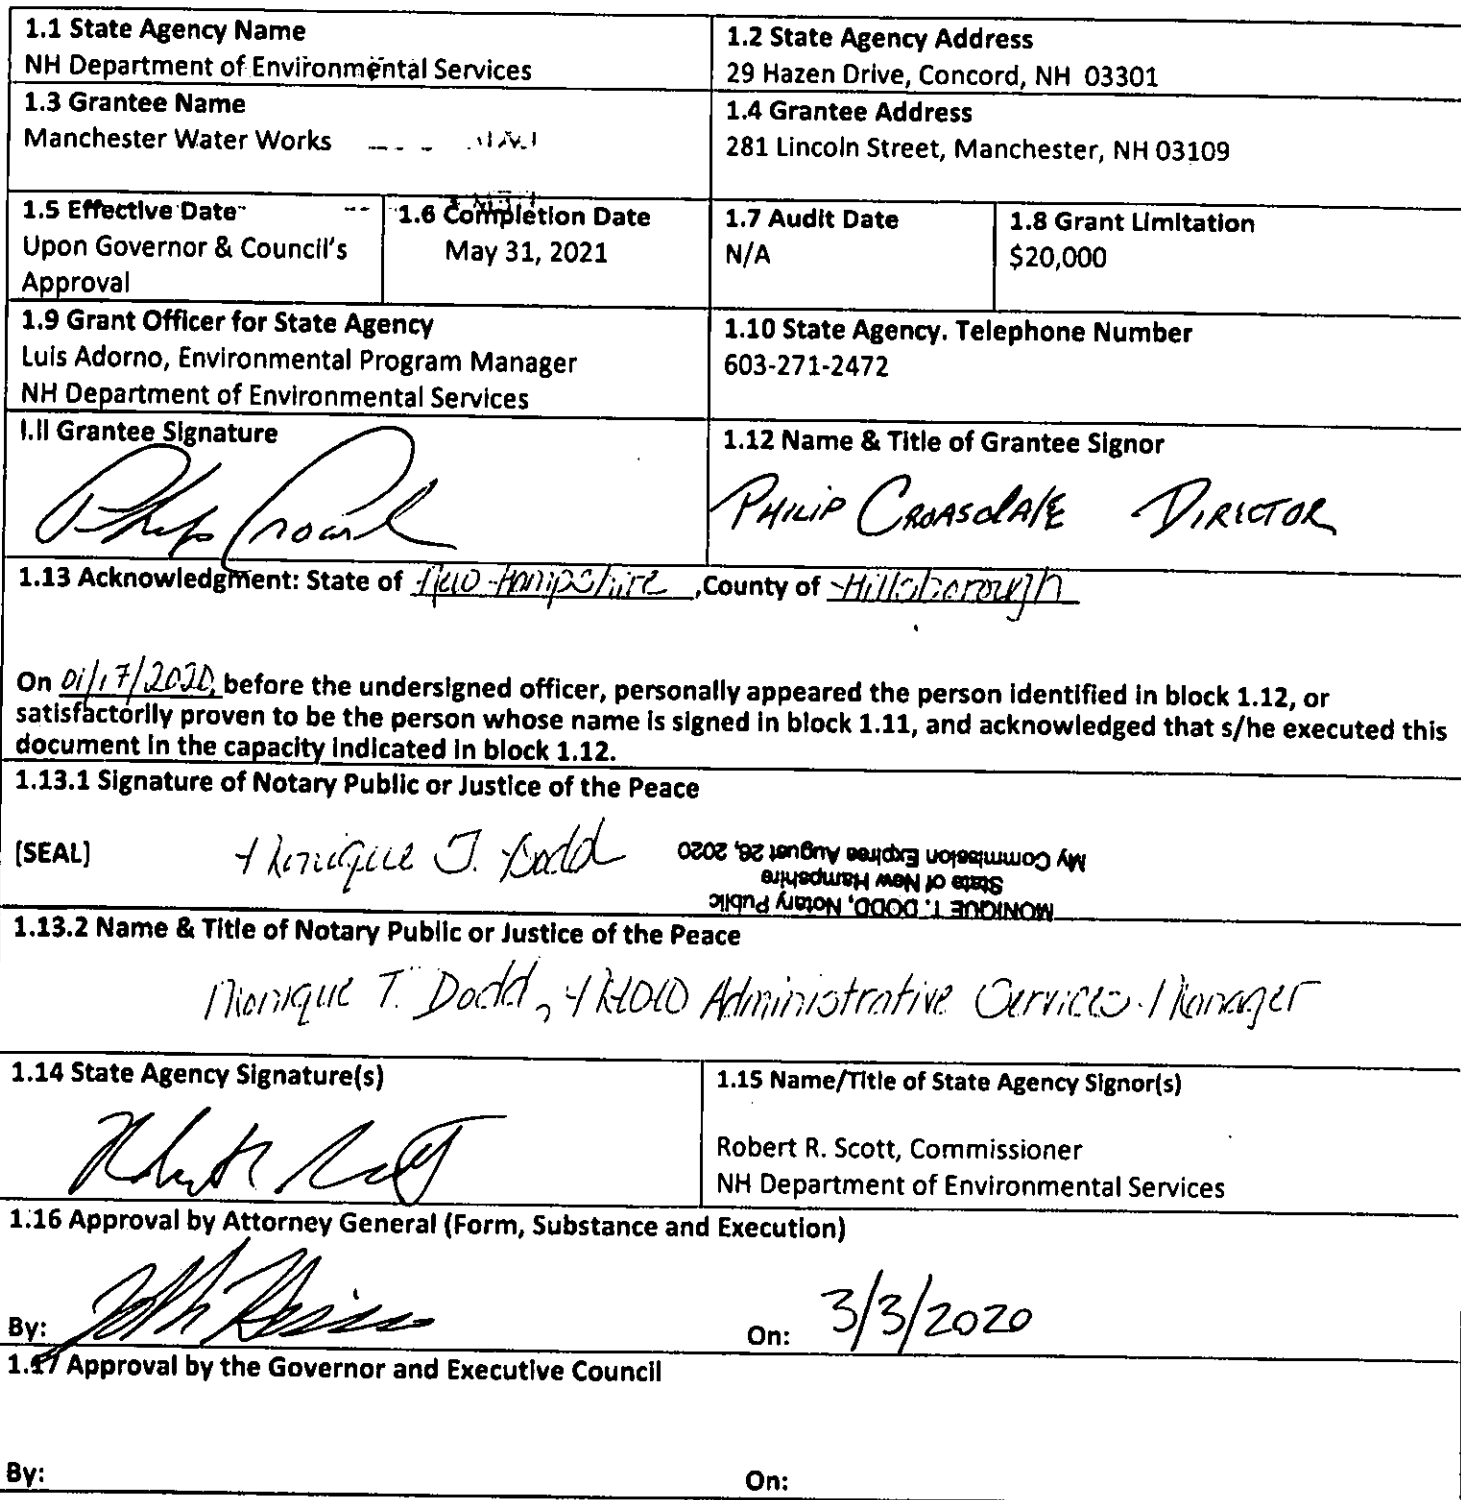 1.1 State Agency Name
NH Department of Environmental Services
1.2 State Agency Address
29 Hazen Drive, Concord, NH 03301
1.3 Grantee Name
Manchester Water Works
1.4 Grantee Address
281 Lincoln Street, Manchester, NH 03109
1.5 Effective Date
Upon Governor & Council's
Approval
1.6 Completion Date
May 31, 2021
1.7 Audit Date
N/A
1.8 Grant Limitation
$20,000
1.9 Grant Officer for State Agency
Luis Adorno, Environmental Program Manager
NH Department of Environmental Services
1.10 State Agency. Telephone Number
603-271-2472
I.II Grantee Signature
1.12 Name & Title of Grantee Signor
PHILIP CROASDALE DIRECTOR
1.13 Acknowledgment: State of New Hampshire, County of Hillsborough
On 01/17/2020, before the undersigned officer, personally appeared the person identified in block 1.12, or
satisfactorily proven to be the person whose name is signed in block 1.11, and acknowledged that s/he executed this
document in the capacity indicated in block 1.12.
1.13.1 Signature of Notary Public or Justice of the Peace
[SEAL] Monique T. Dodd
MONIQUE T. DODD, Notary Public
State of New Hampshire
My Commission Expires August 26, 2020
1.13.2 Name & Title of Notary Public or Justice of the Peace
Monique T. Dodd, Administrative Services Manager
1.14 State Agency Signature(s)
1.15 Name/Title of State Agency Signor(s)
Robert R. Scott, Commissioner
NH Department of Environmental Services
1.16 Approval by Attorney General (Form, Substance and Execution)
By: On: 3/3/2020
1.17 Approval by the Governor and Executive Council
By: On: